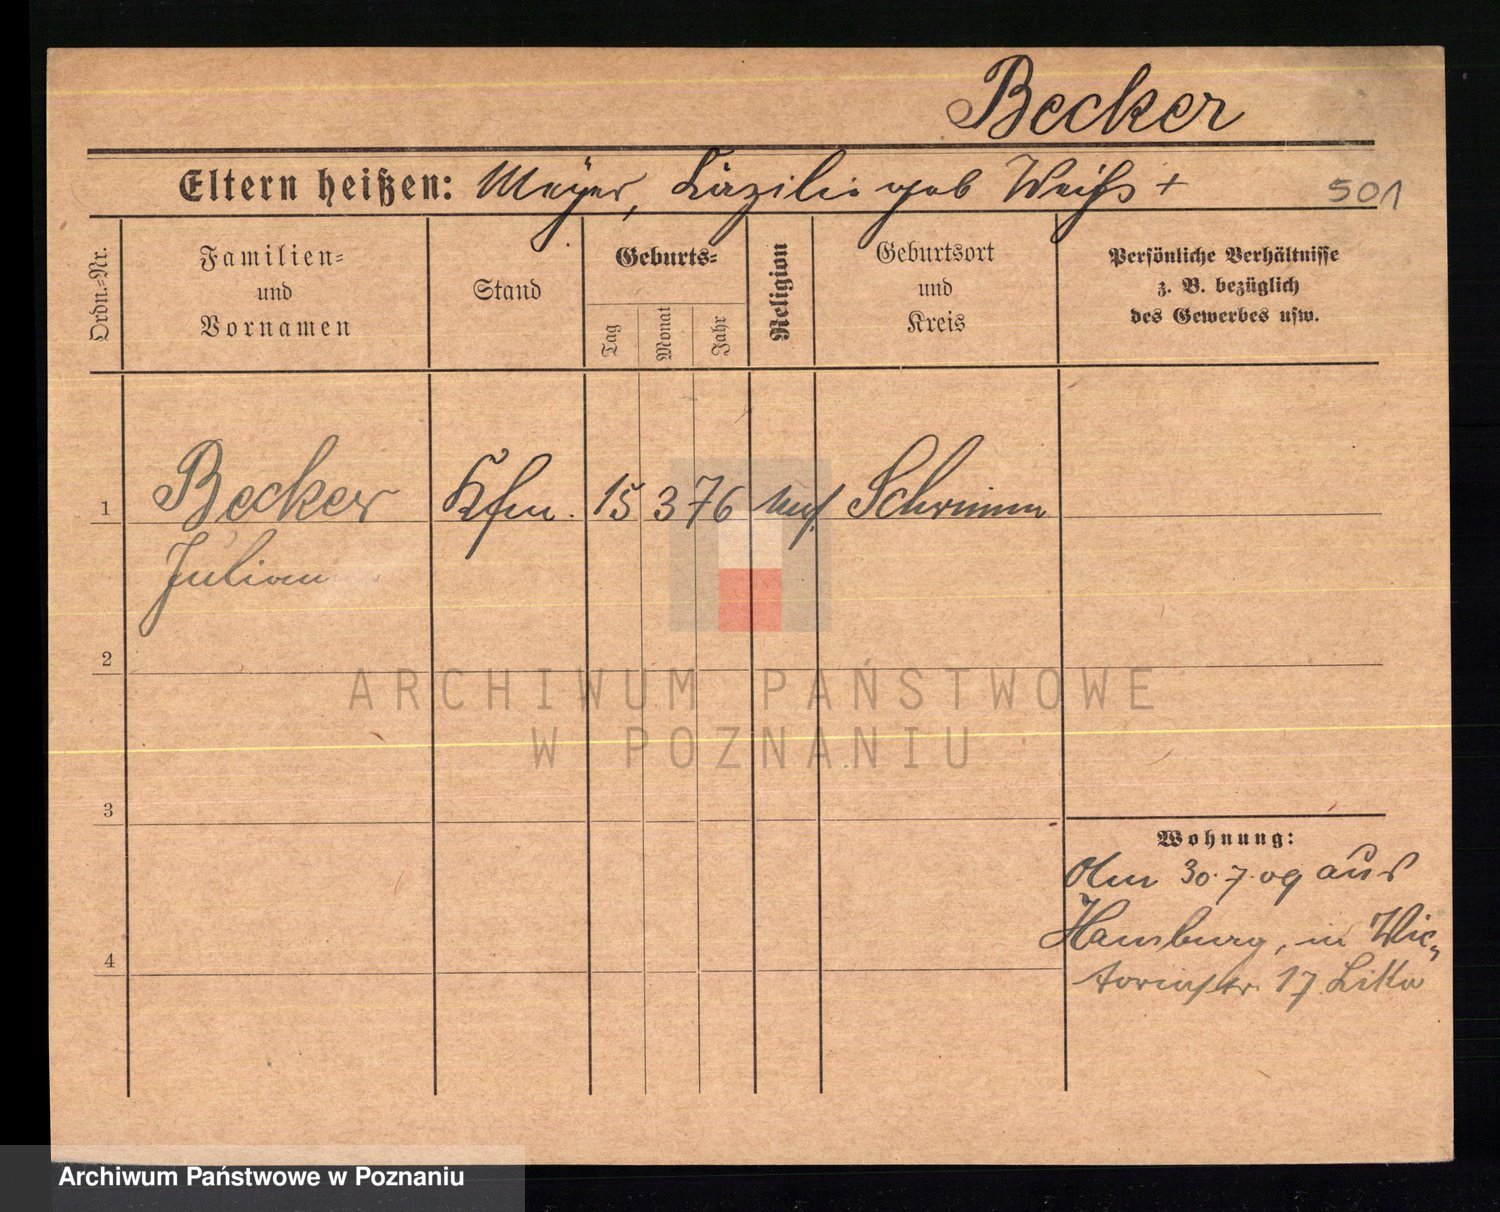 Becker
Eltern heißen: Meyer, Zäzilie geb Weiß +
501
Ordn.-Nr.
Familien-
und
Vornamen
Stand
Geburts-
Tag
Monat
Jahr
Religion
Geburtsort
und
Kreis
Persönliche Verhältnisse
z. B. bezüglich
des Gewerbes usw.
1 Becker Kfm. 15 3 76 mos. Schrimm
Julian
2
ARCHIWUM PAŃSTWOWE
W POZNANIU
3
Wohnung:
30.7.09 aus
Hamburg, in Vic-
toriastr. 17
4
Archiwum Państwowe w Poznaniu